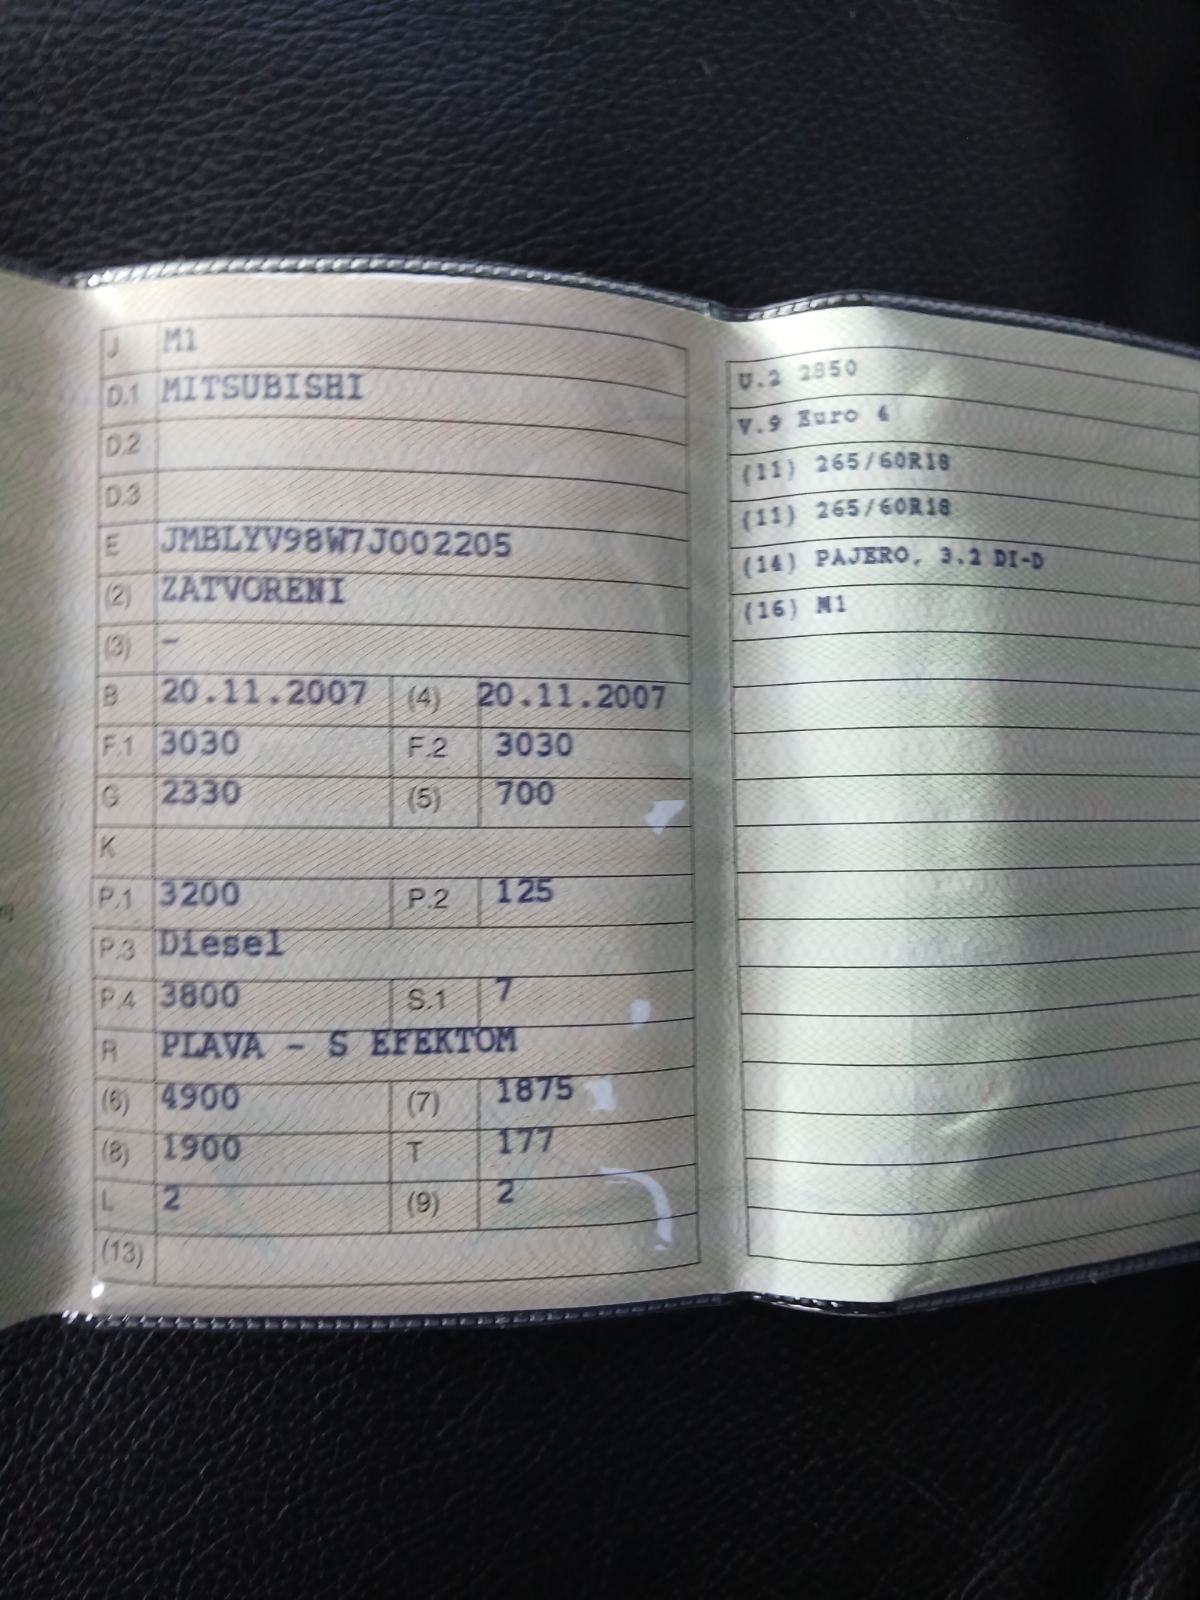 J M1
D.1 MITSUBISHI
D.2
D.3
E JMBLYV98W7J002205
(2) ZATVORENI
(3) -
B 20.11.2007 (4) 20.11.2007
F.1 3030 F.2 3030
G 2330 (5) 700
K
P.1 3200 P.2 125
P.3 Diesel
P.4 3800 S.1 7
R PLAVA - S EFEKTOM
(6) 4900 (7) 1875
(8) 1900 T 177
L 2 (9) 2
(13)
U.2 2850
V.9 Euro 4
(11) 265/60R18
(11) 265/60R18
(14) PAJERO, 3.2 DI-D
(16) M1